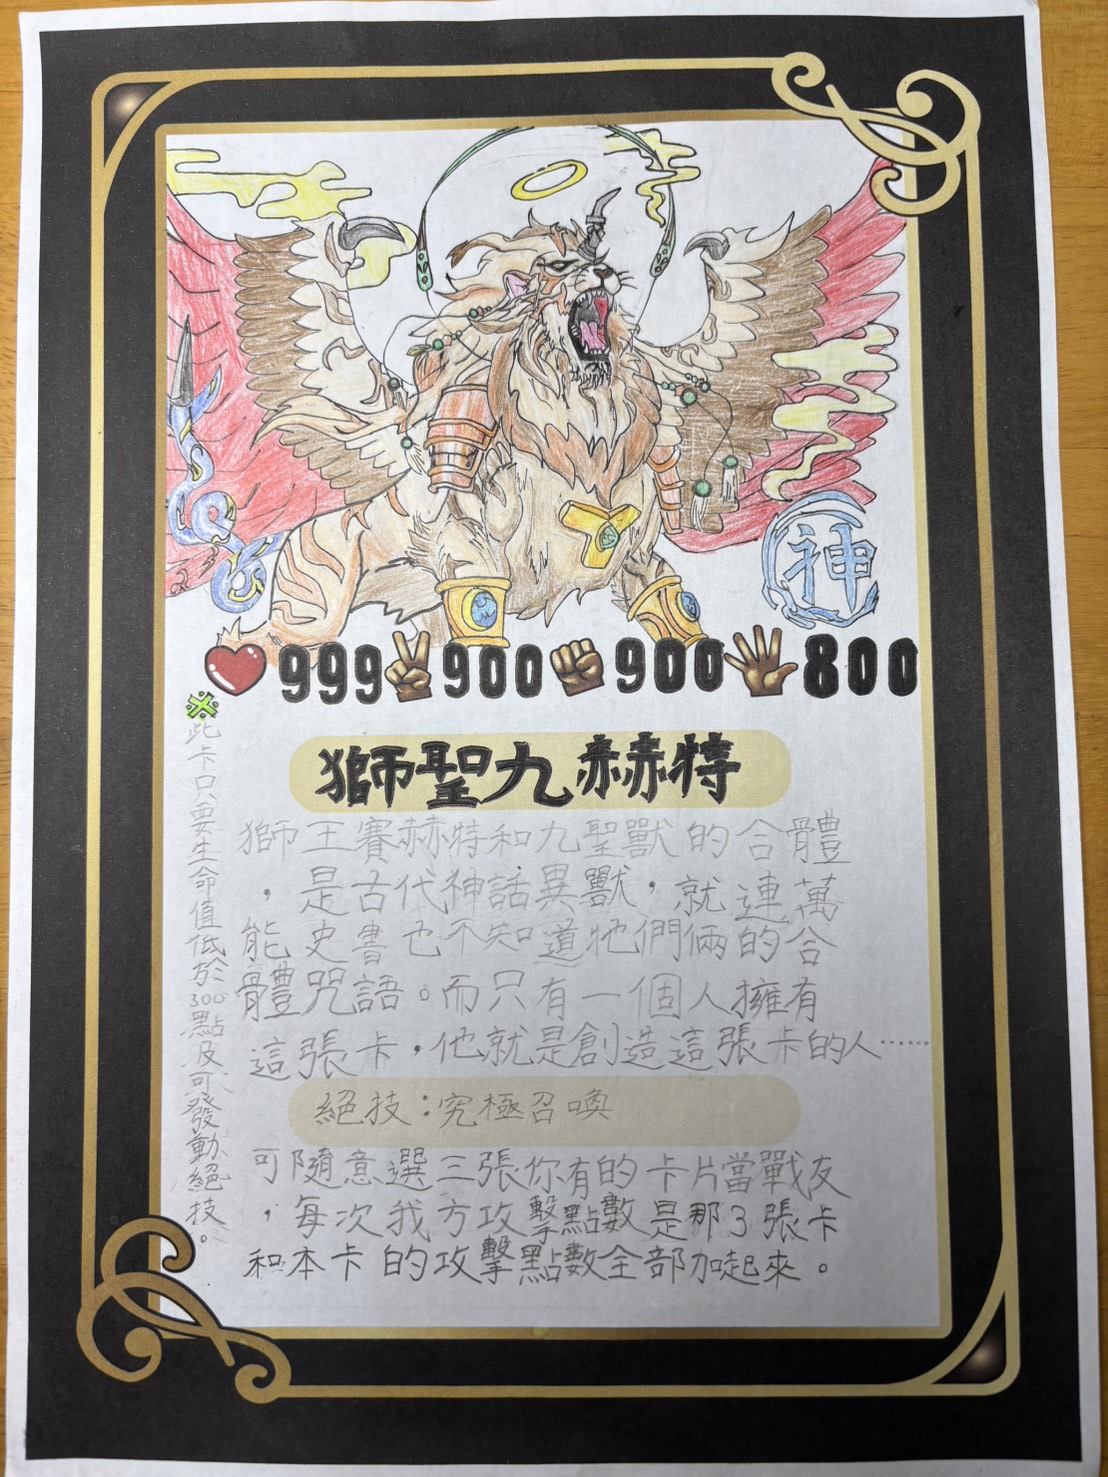 神
999 900 900 800
獅聖九赫特
獅王賽赫特和九聖獸的合體
，是古代神話異獸，就連萬
能史書也不知道牠們倆的合
體咒語。而只有一個人擁有
這張卡，他就是創造這張卡的人……
絕技：究極召喚
可隨意選三張你有的卡片當戰友
，每次我方攻擊點數是那3張卡
和本卡的攻擊點數全部加起來。
※此卡只要生命值低於300點及可發動絕技。